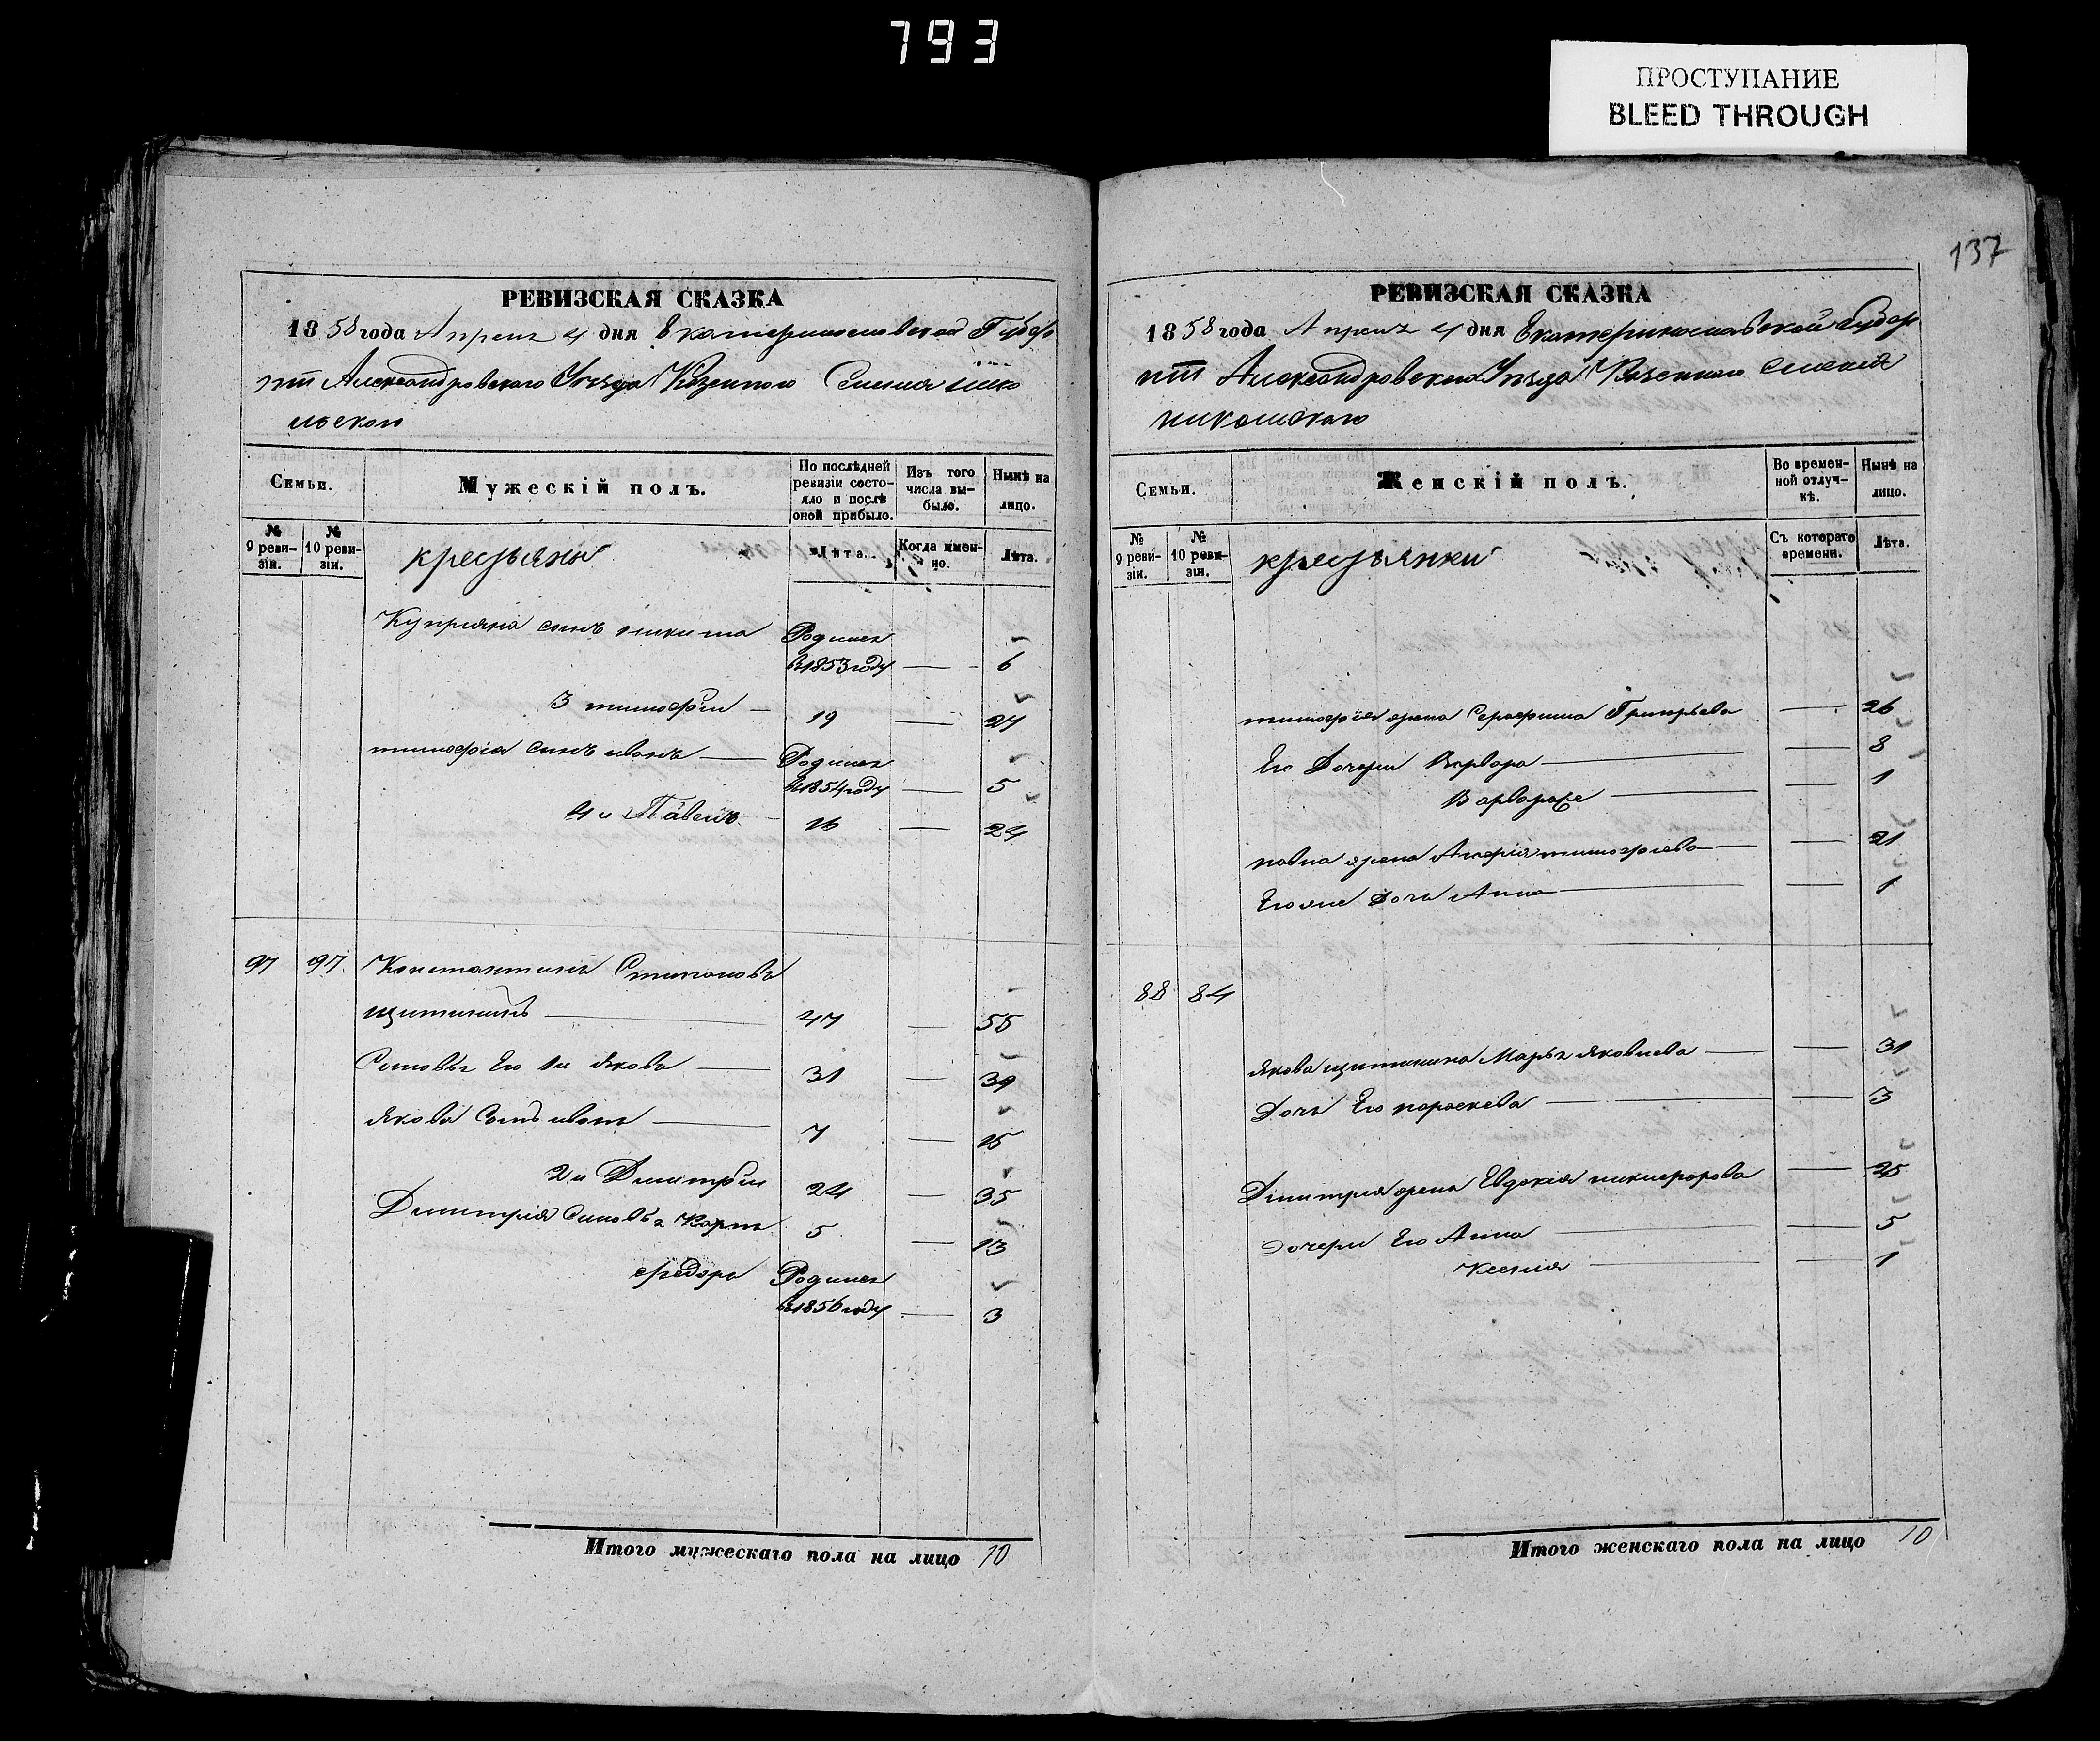 793
ПРОСТУПАНИЕ
BLEED THROUGH
РЕВИЗСКАЯ СКАЗКА
1858 года Апреля 4 дня Екатеринославской Губер
нии Александровского Уезда Казенного Селения Нико
льского
Семьи.
Мужескій полъ.
По послѣдней ревизіи состо-яло и послѣ оной прибыло.
Изъ того числа вы-было.
Нынѣ на лицо.
№ 9 реви-зіи.
№ 10 реви-зіи.
крестьяны
Лѣта.
Когда имен-но.
Лѣта.
Куприяна сынъ никита Родился
в 1853 году — 6
3 тимофеи — 19 — 27
тимофея сынъ иванъ — Родился
в 1854 году — 5
4и Павелъ 16 — 24
97 97 Константинъ
47 — 55
Его 1и Яковъ — 31 — 39
Якова Сынъ иванъ — 7 — 15
2и Димитрий 24 — 35
Димитрия Сыновья Карпъ 5 — 13
федоръ Родился
в 1856 году — 3
Итого мужескаго пола на лицо 10
137
РЕВИЗСКАЯ СКАЗКА
1858 года Апреля 4 дня Екатеринославской Губер
нии Александровского Уезда Казенного Селения
никольского
Семьи.
Женскій полъ.
Во времен-ной отлуч-кѣ.
Нынѣ на лицо.
№ 9 реви-зіи.
№ 10 реви-зіи.
крестьянки
Съ котораго времени.
Лѣта.
тимофея жена Серафима Григорьева — 26
Его Дочери Варвара — 8
Варвара же — 1
павла жена тимофеева — 21
Его же Дочь Анна — 1
88 84
Якова Марья Яковлева — 31
Дочь Его параскева — 3
Димитрия жена Евдокия никифорова — 25
Дочери Его Анна — 5
Ксения — 1
Итого женскаго пола на лицо 10